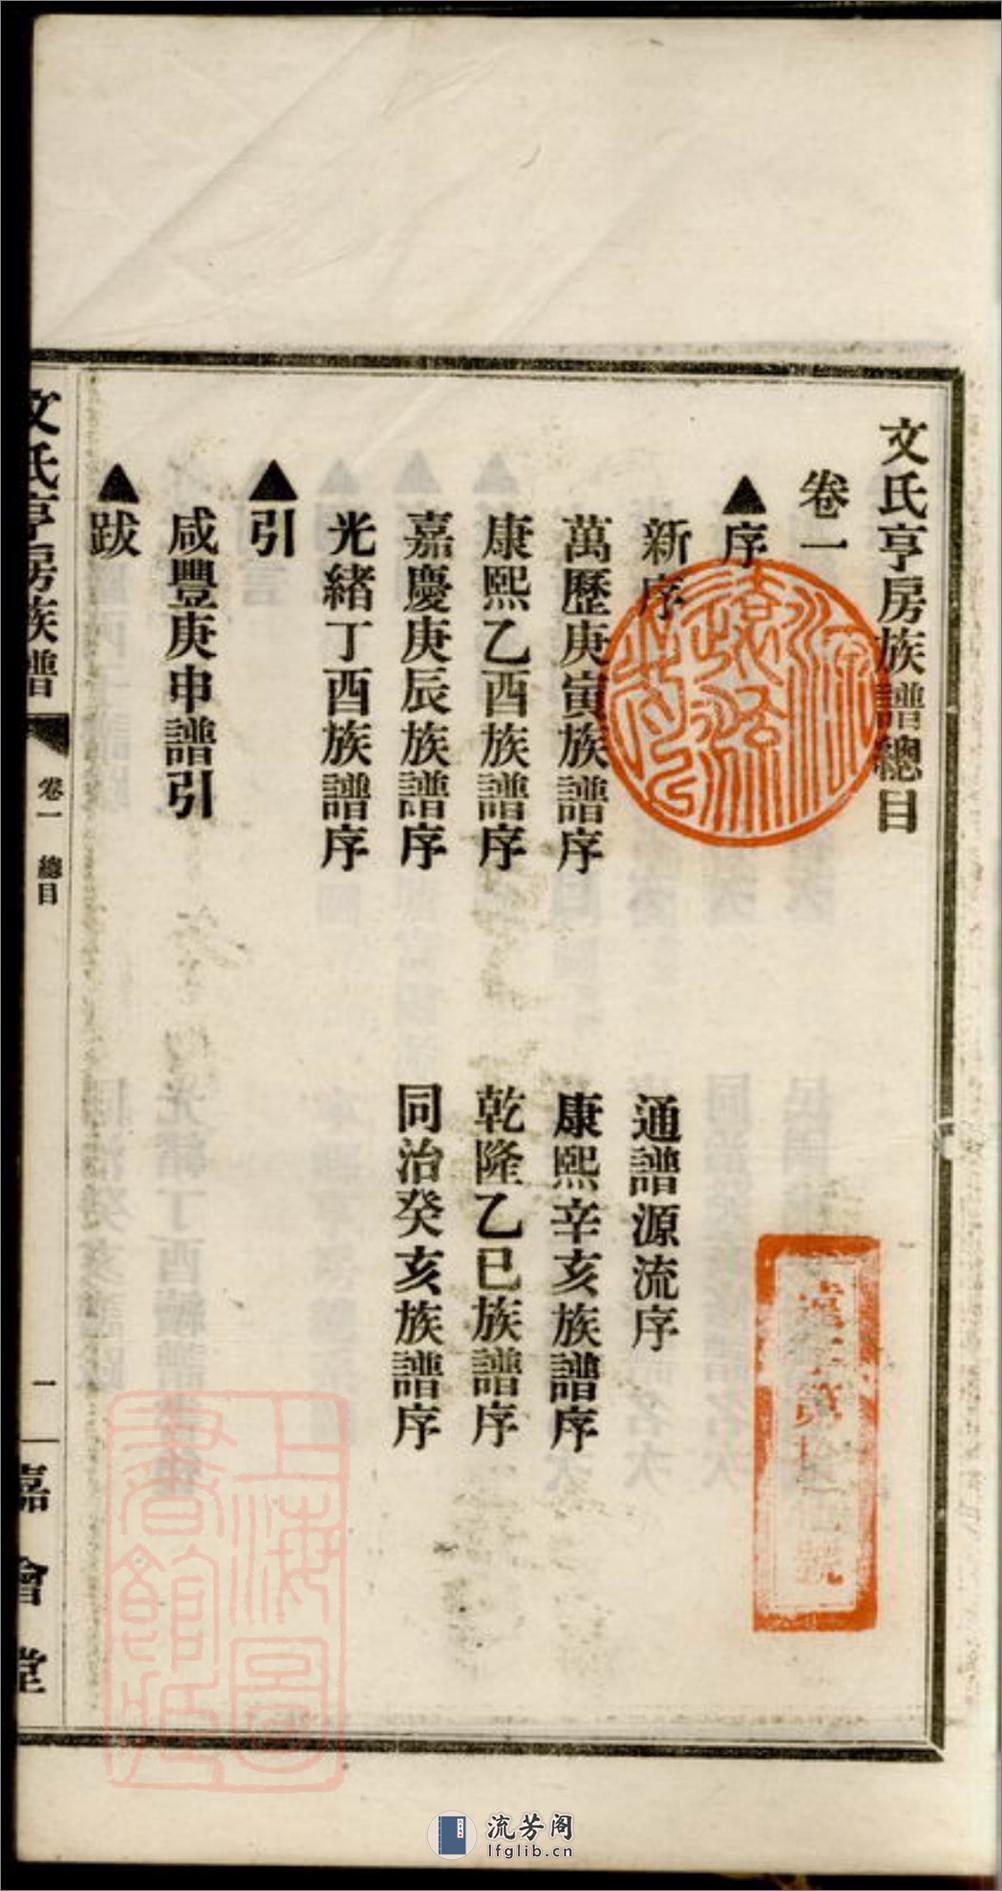 文氏亨房族譜總目
卷一
▲序
新序
通譜源流序
萬歷庚寅族譜序
康熙辛亥族譜序
康熙乙酉族譜序
乾隆乙巳族譜序
嘉慶庚辰族譜序
同治癸亥族譜序
光緒丁酉族譜序
▲引
咸豐庚申譜引
▲跋
文氏亨房族譜
卷一 總目
一
嘉會堂
上海圖書館藏
流芳阁
lfglib.cn